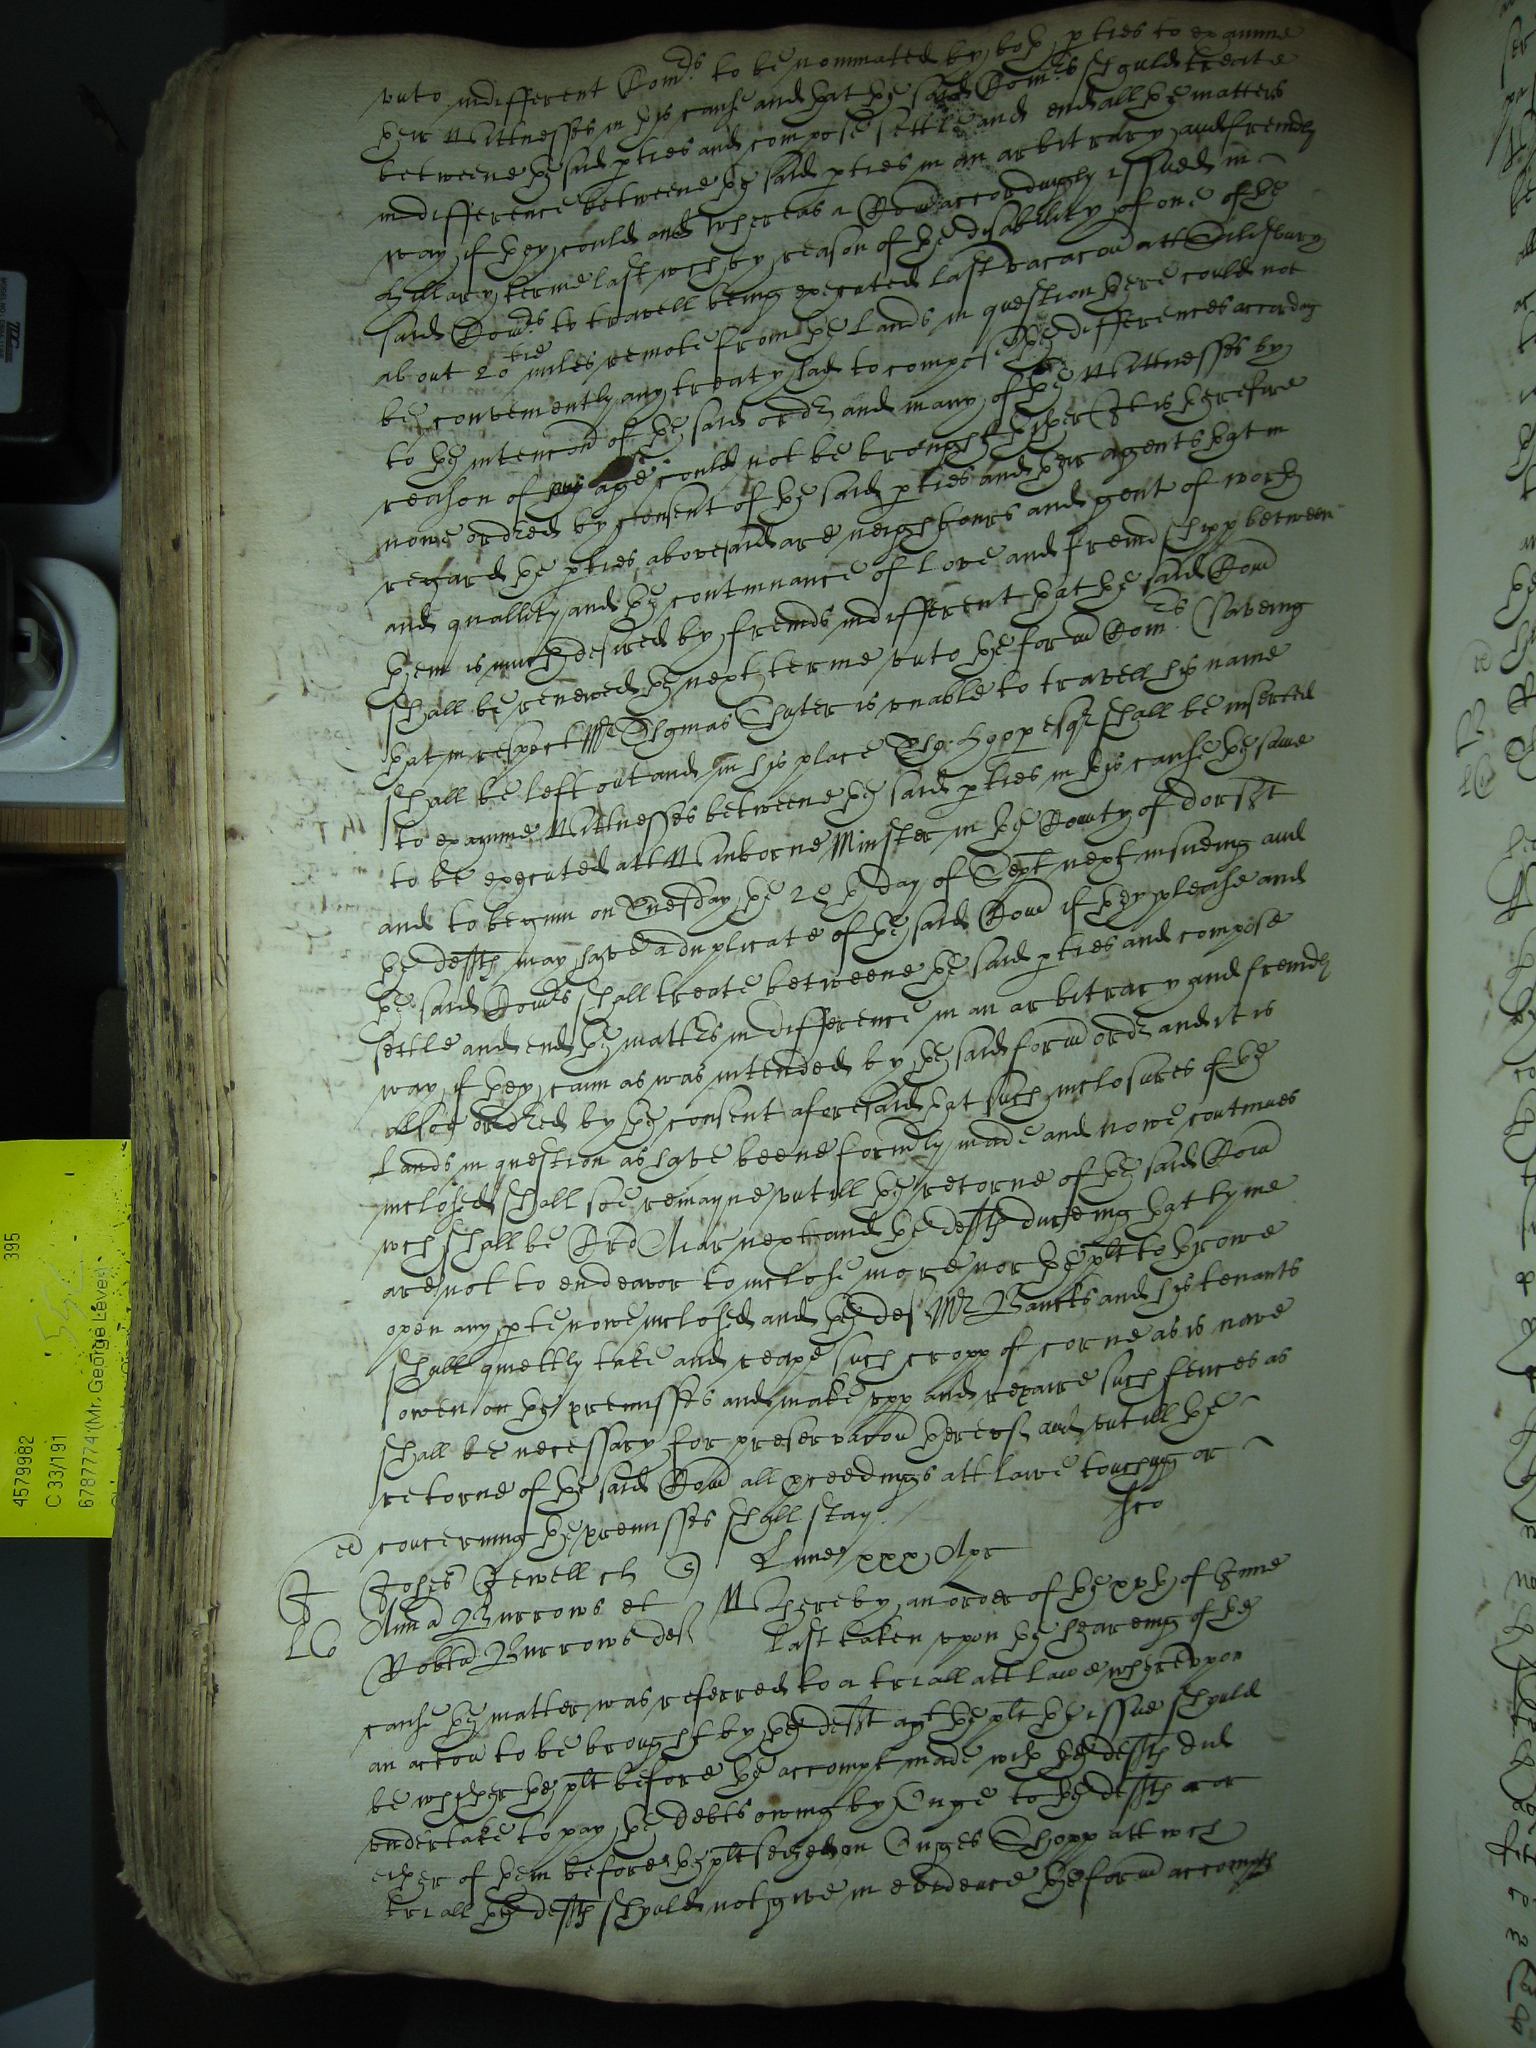 unto indifferent Comrs to be nominated by both pties to examine
their Wittnesses in this cause and that the said Comrs should treate
betweene the said pties and compose settle and end all the matters
in difference betweene the said pties in an arbitrary and freindly
way if they could and whereas a Com accordingly issued in
Hillary terme last wch by reason of the disability of one of the
said Comrs to travell being executed last vacacon att Salisbury
about 20tie miles remote from the lands in question there could not
be conveniently any treaty had to compose the differences according
to the intencon of the said order and many of the Wittnesses by
reason of age could not be brought thither It is therefore
nowe ordred by consent of the said pties and their agents that in
regard the pties abovesaid are neighbours and gent of worth
and quallity and the continuance of love and freindshipp betweene
them is much desired by freinds indifferent that the said Com
shall be renewed the next terme unto the form Comrs (saveing
that in respect Mr Thomas Chater is unable to travell his name
shall be left out and in his place Tho: Hoop esqr shall be inserted
to examine Wittnesses betweene the said pties in this cause the same
to be executed att Winborne Minster in the County of dorst
and to beginn on Tuesday the 28th day of Sept next insueing and
the defts may have a duplicate of the said Com if they please and
the said Comrs shall treate betweene the said pties and compose
settle and end the matters in difference in an arbitrary and freindly
way if they cann as was intended by the said form order and it is
alsoe ordred by the consent aforesaid that such inclosures of the
Lands in question as have beene formly made and nowe continues
inclosed shall soe remayne untill the retorne of the said Com
wch shall be Cro Aiar next and the defts dureing that tyme
are not to endeavor to inclose more nor the plt to throwe
open any pte nowe inclosed and the deft Mr Bancks and his tenants
shall quiettly take and reape such cropp of corne as is nowe
sowen on the premisses and make upp and repaire such fences as
shall be necessary for preservacon thereof and untill the
retorne of the said Com all pceedings att lawe touching or
concerning the premisses shall stay.
Johes Jewell ch Lune xxx Apr
Anna Burrows et Whereby an order of the xxth of June
Robtu Burrows def last taken upon the heareing of the
cause the matter was referred to a triall att lawe whereupon
an accon to be brought by the deft agt the plt the issue should
be whether the plt before the accompt made with the defts did
undertake to pay the debts oweing by Inge to the defts or
either of them before the plt seized on Inges Shopp att wch
triall the defts should not give in evidence the form accompts
4579982 395
C 33/191
6787774 (Mr. George Leven